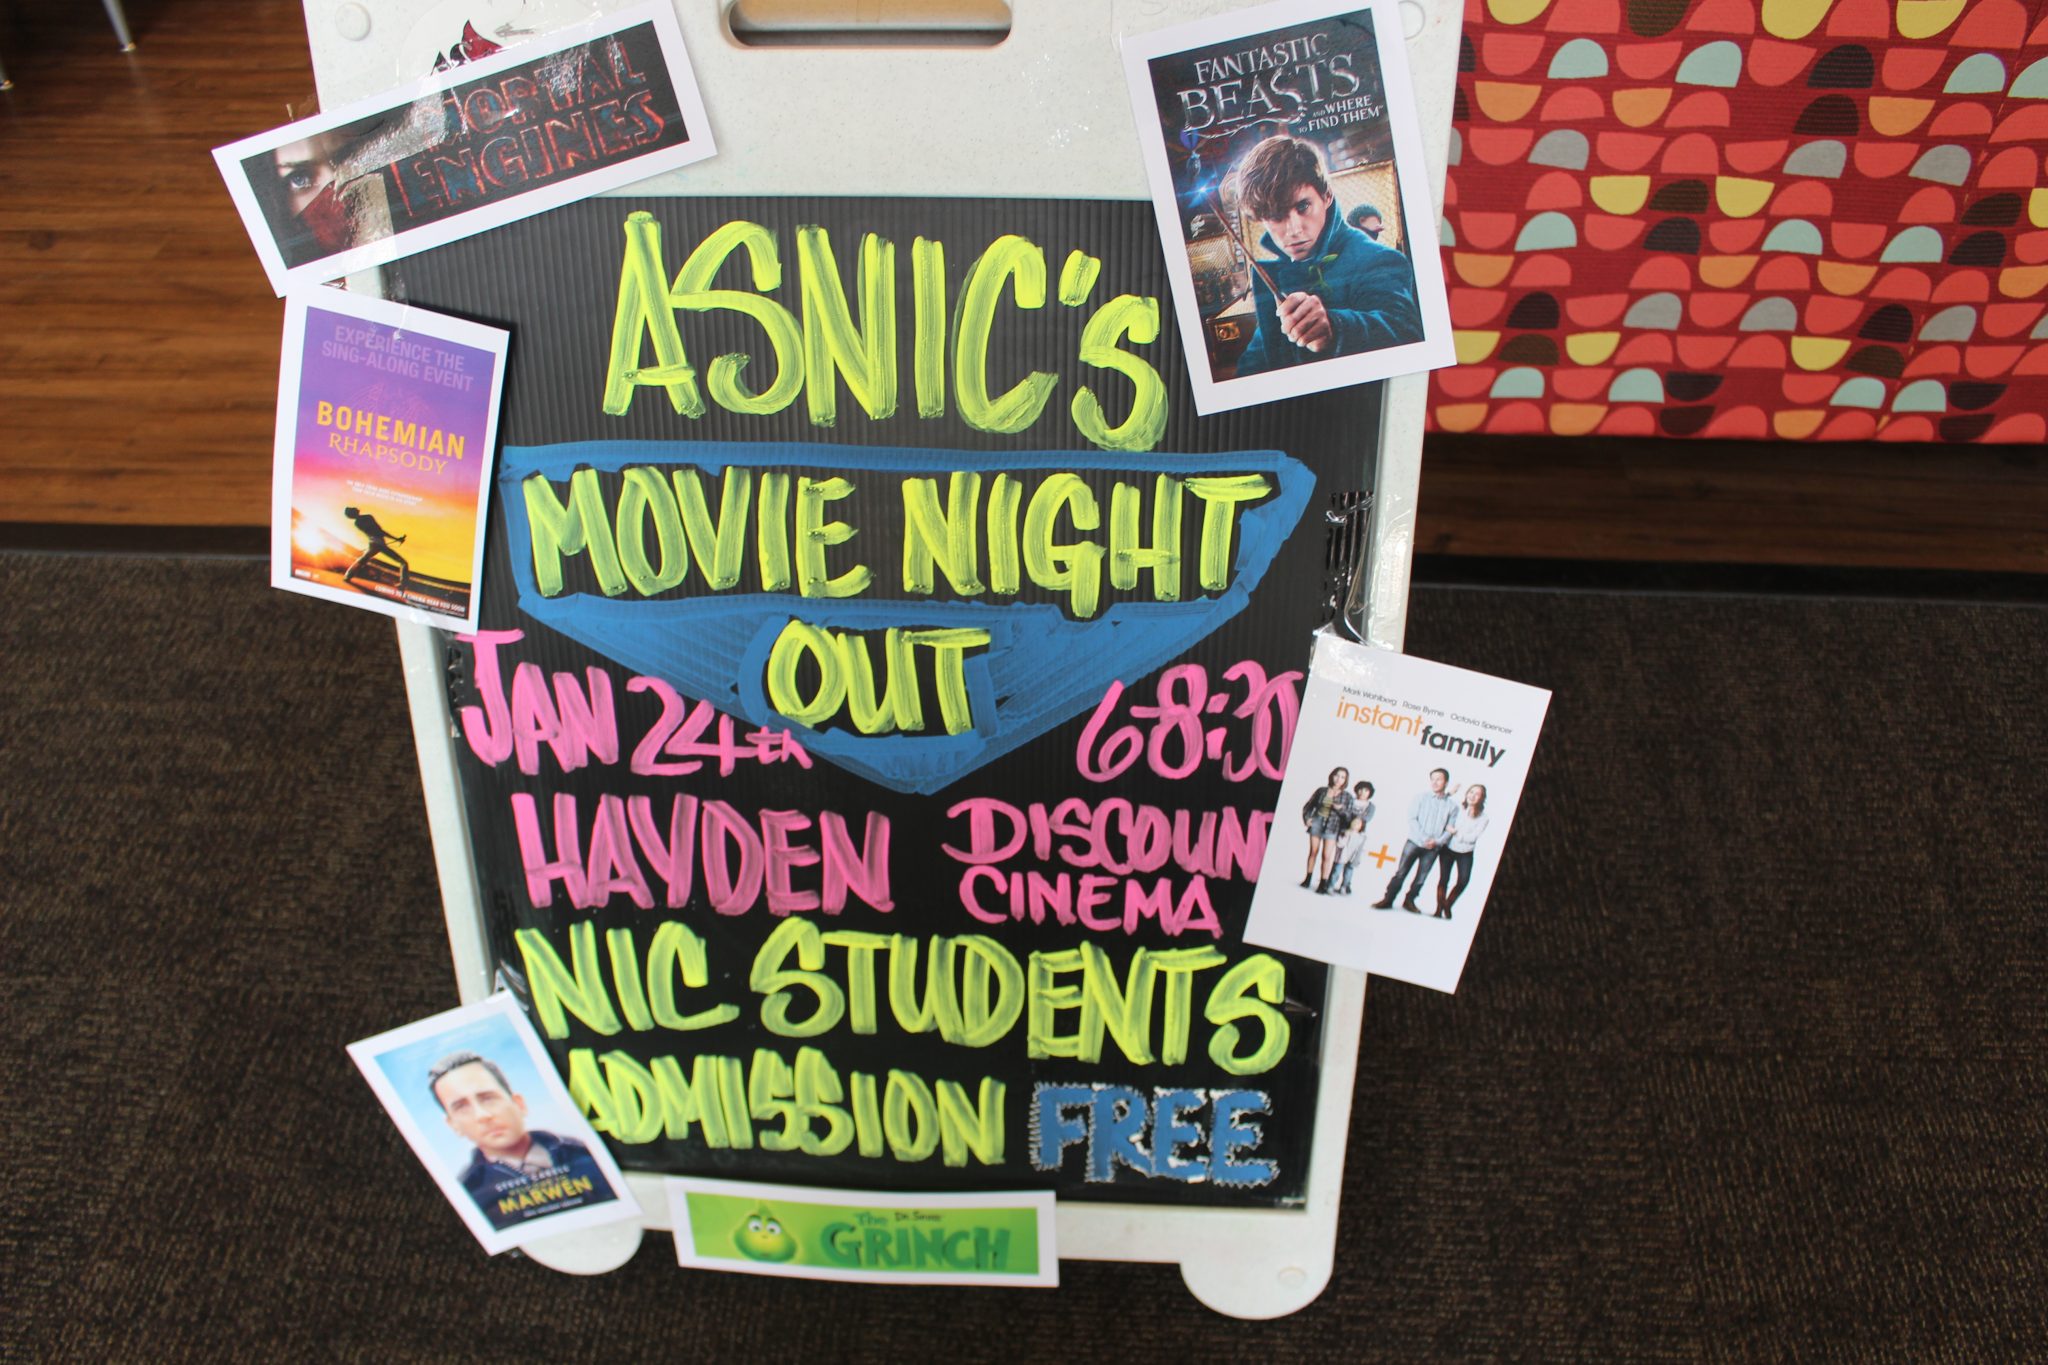 MORTAL
ENGINES
FANTASTIC
BEASTS
AND WHERE
TO FIND THEM
EXPERIENCE THE
SING-ALONG EVENT
BOHEMIAN
RHAPSODY
COMING TO A CINEMA NEAR YOU SOON
ASNIC's
MOVIE NIGHT
OUT
JAN 24th 6-8:30
HAYDEN DISCOUN
CINEMA
NIC STUDENTS
ADMISSION FREE
Mark Wahlberg Rose Byrne Octavia Spencer
instant family
+
STEVE CARELL
MARWEN
The Dr. Seuss'
GRINCH